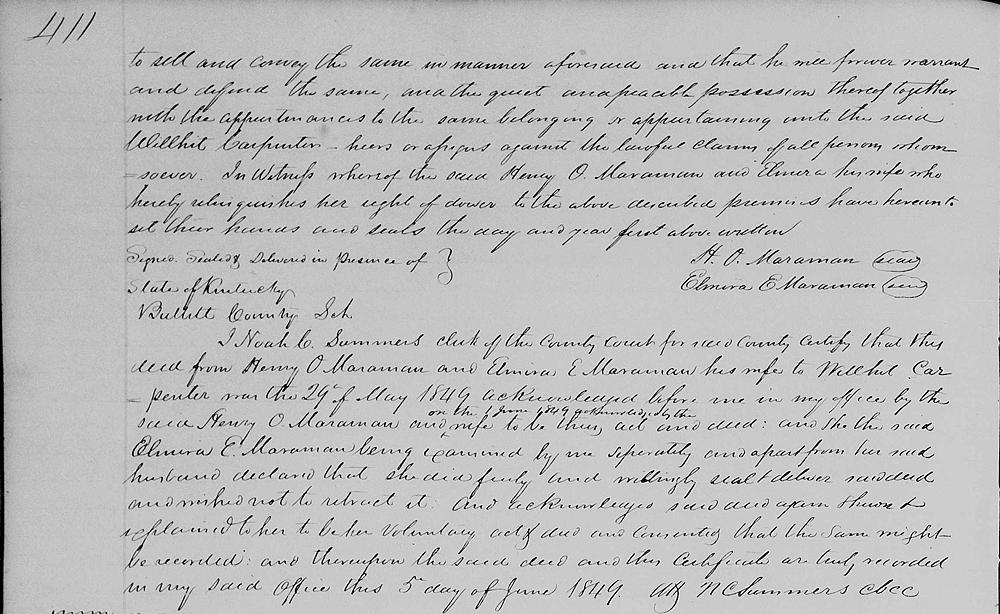 411
to sell and convey the same in manner aforesaid and that he will forever warrant
and defend the same, and the quiet and peacable possession thereof together
with the appurtinances to the same belonging or appurtaining unto the said
Willhit Carpenter heirs or assigns against the lawful claims of all persons whom
=soever. In Witness whereof the said Henry O. Maraman and Elmira his wife who
hereby relinquishes her right of dower to the above described premises have hereunto
set their hands and seals the day and year first above written
Signed. Sealed & Delivered in presence of } H. O. Maraman (seal)
State of Kentucky Elmira E Maraman (seal)
Bullitt County Sct
I Noah C. Summers clerk of the County Court for said County certify that this
deed from Henry O Maraman and Elmira E Maraman his wife to Willhit Car
=penter was the 29th of May 1849 acknowledged before me in my office by the
on the June 1849 acknowledged by the
said Henry O. Maraman and wife to be their act and deed: and she the said
Elmira E. Maraman being examined by me seperately and apart from her said
husband declared that she did freely and willingly seal & deliver said deed
and wished not to retract it. And acknowledges said deed again shewn &
explained to her to be her voluntary act & deed and consented that the same might
be recorded: and thereupon the said deed and this Certificate are truly recorded
in my said office this 5th day of June 1849. Att N C Summers cbcc